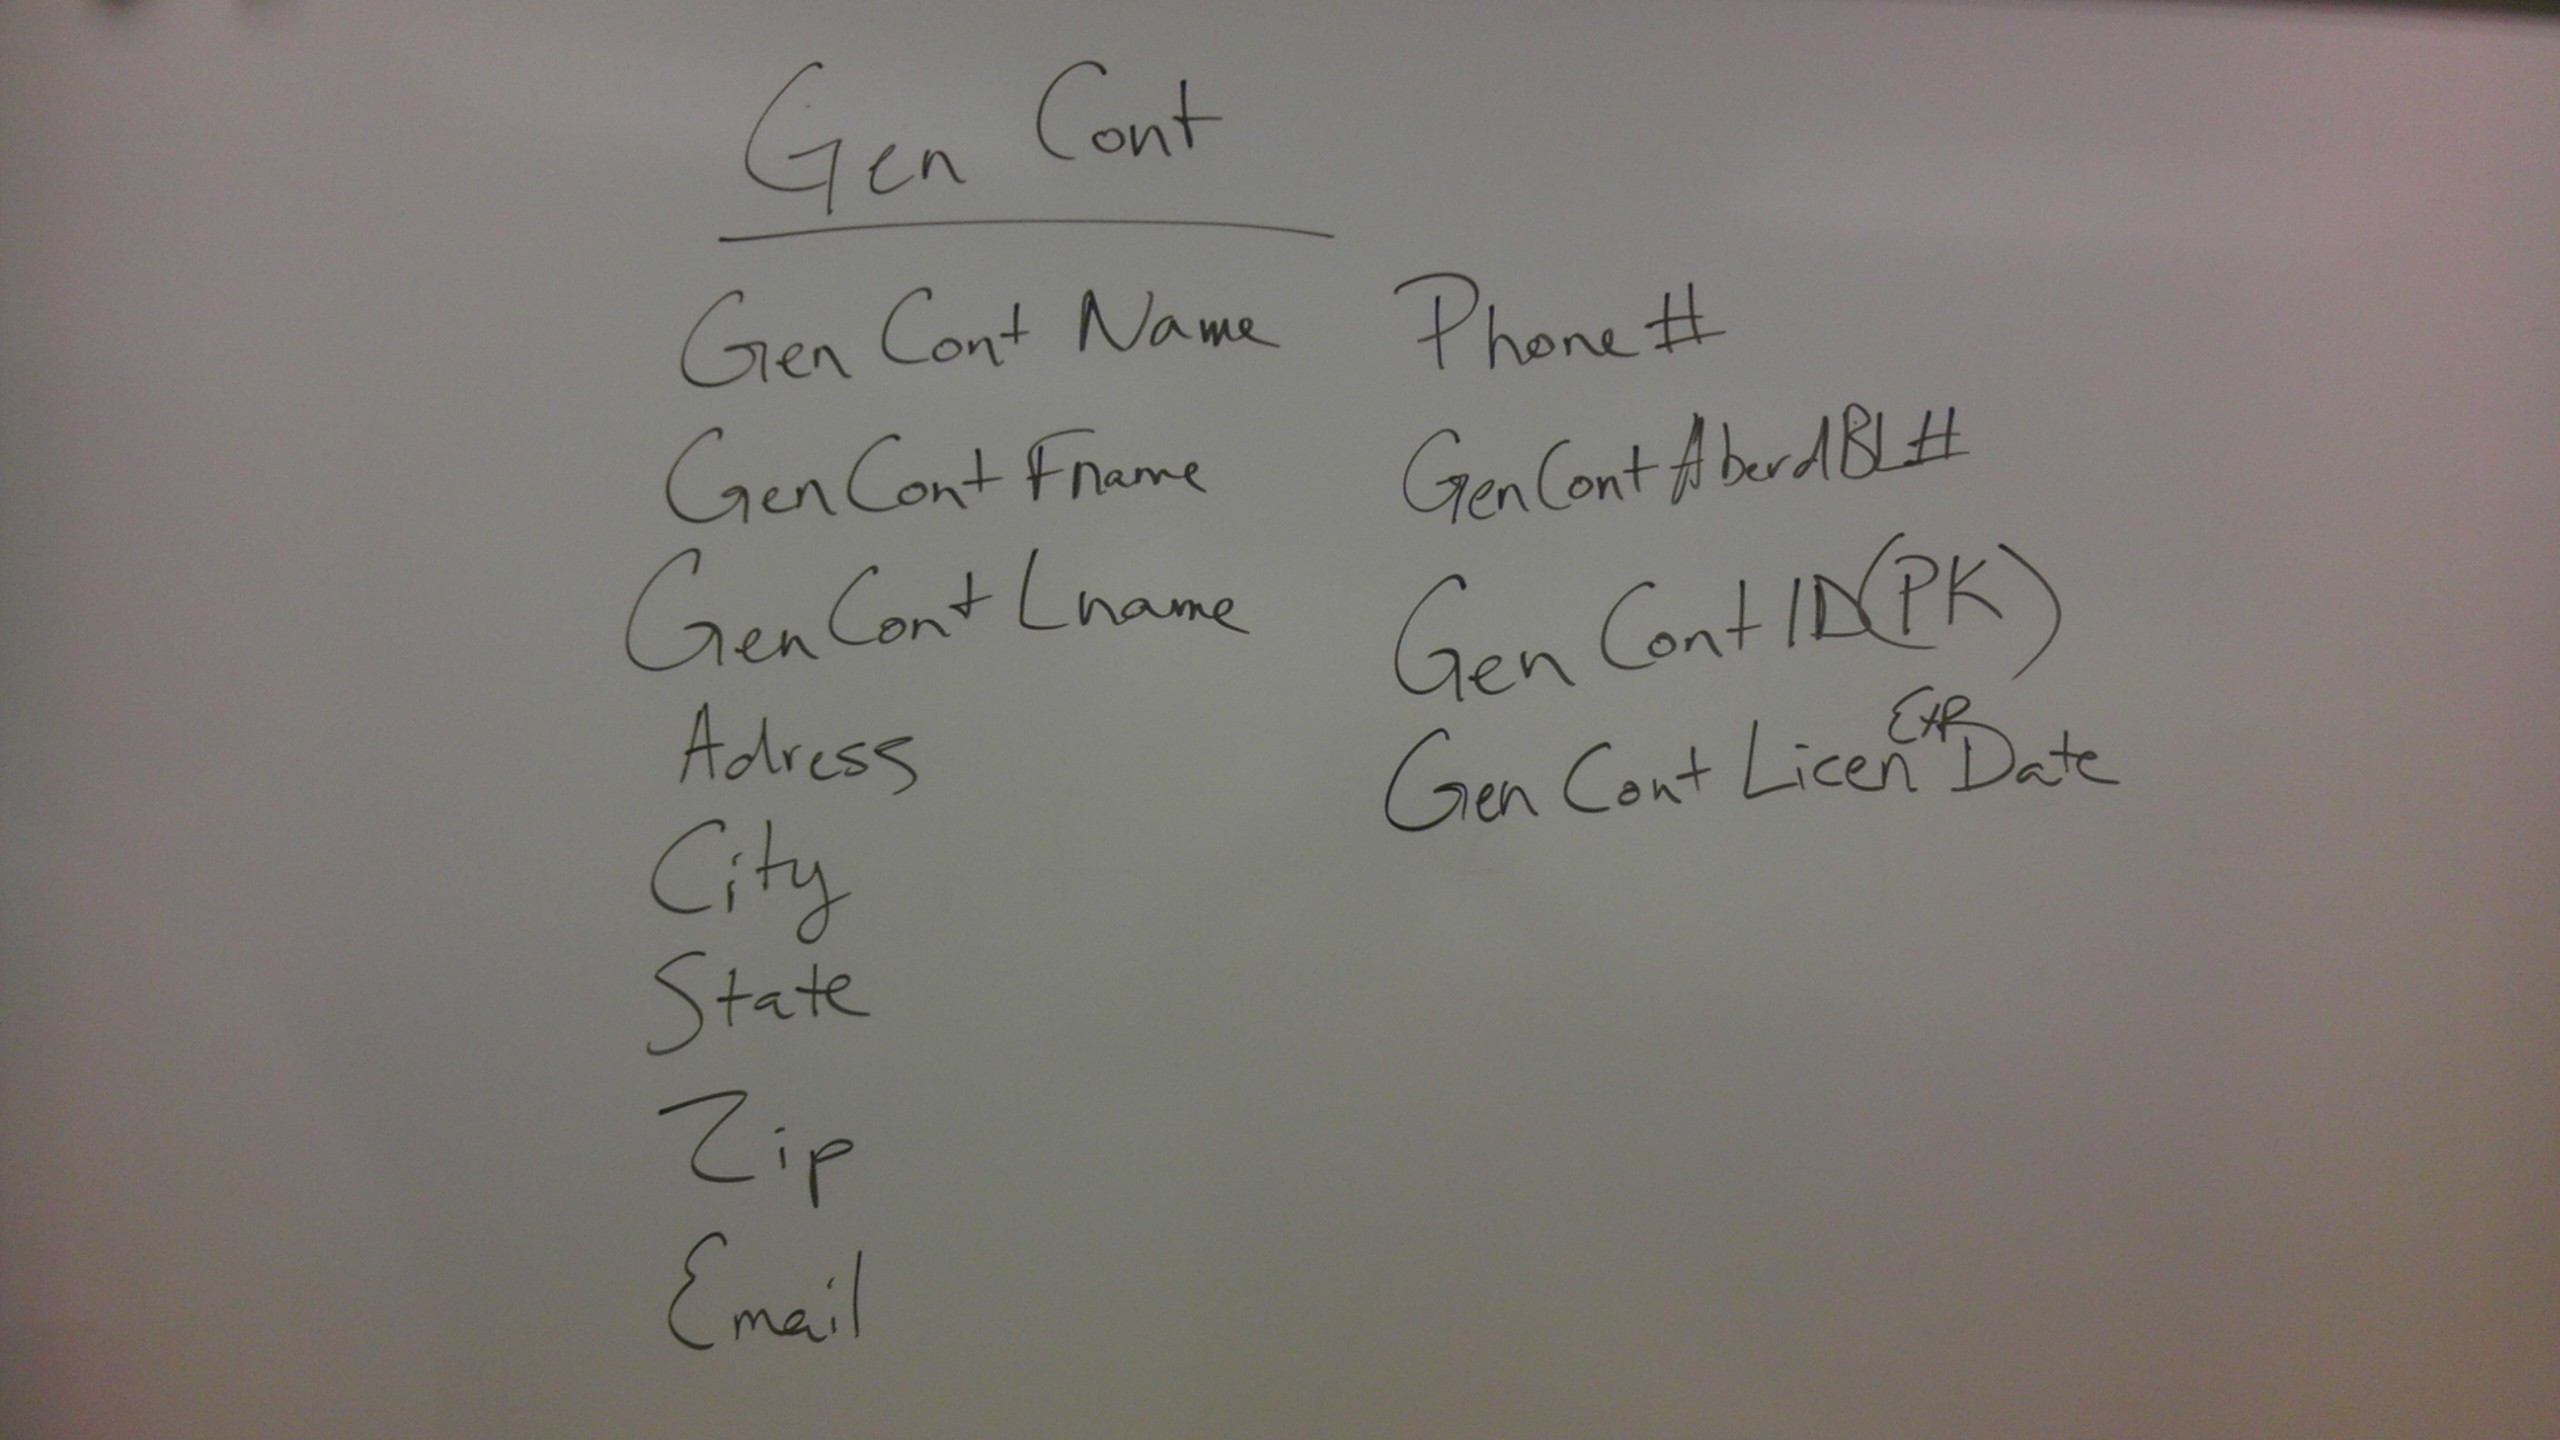 Gen Cont
Gen Cont Name
Gen Cont Fname
Gen Cont Lname
Adress
City
State
Zip
Email
Phone #
Gen Cont AberdBL#
Gen Cont ID(PK)
Gen Cont Licen Exp Date